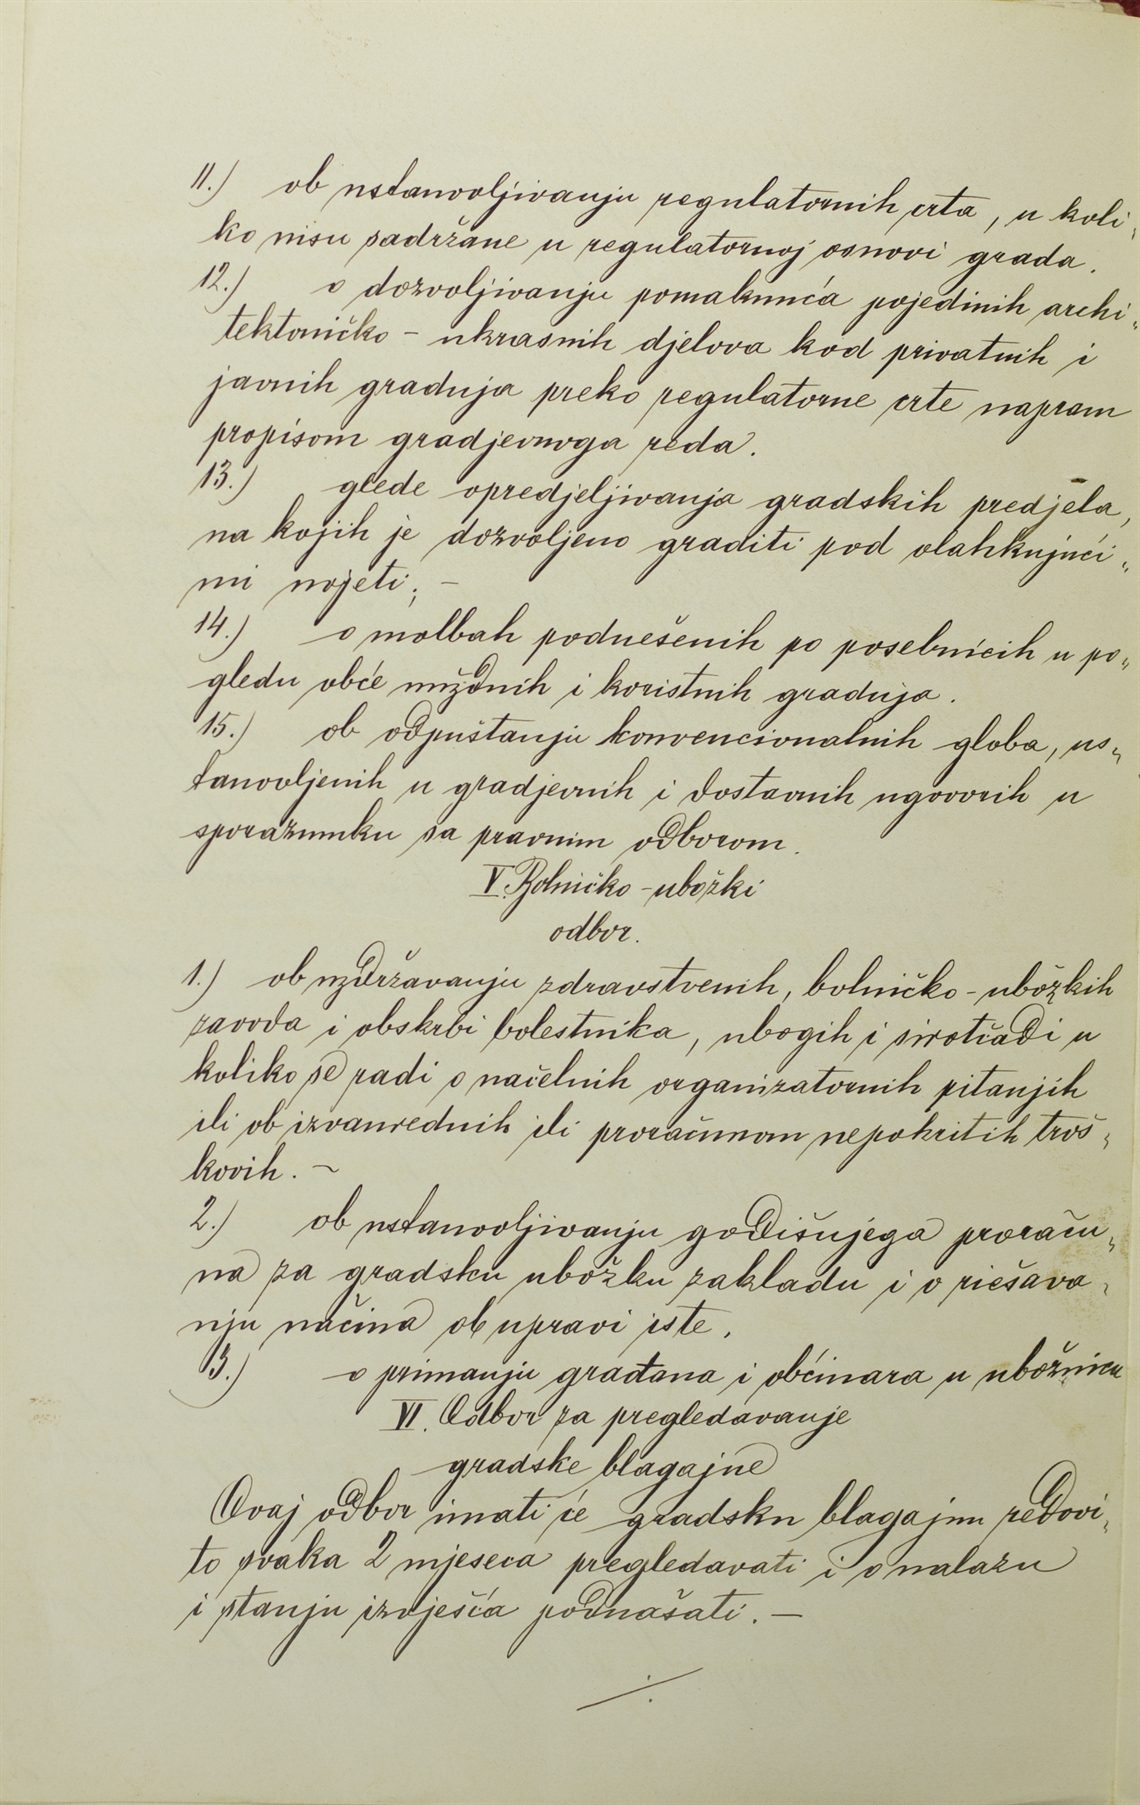 11.) ob ustanovljivanju regulatornih crta, u koli„
ko nisu sadržane u regulatornoj osnovi grada.
12.) o dozvoljivanju pomaknuća pojedinih archi„
tektoničko - ukrasnih djelova kod privatnih i
javnih gradnja preko regulatorne crte napram
propisom gradjevnoga reda.
13.) glede opredjeljivanja gradskih predjela,
na kojih je dozvoljeno graditi pod olahkujući„
mi uvjeti; —
14.) o molbah podnešenih po posebnicih u po„
gledu obće nuždnih i koristnih gradnja.
15.) ob odpuštanju konvencionalnih globa, us„
tanovljenih u gradjevnih i dostavnih ugovorih u
sporazumku sa pravnim odborom.
V. Bolničko - ubožki
odbor.
1.) ob uzdržavanju zdravstvenih, bolničko - ubožkih
zavoda i obskrbi bolestnika, ubogih i sirotčadi u
koliko se radi o načelnih organizatornih pitanjih
ili ob izvanrednih ili proračunom nepokritih troš„
kovih. ~
2.) ob ustanovljivanju godišnjega proraču„
na za gradsku ubožku zakladu i o riešava„
nju načina ob upravi iste.
3.) o primanju građana i obćinara u ubožnicu
VI. Odbor za pregledavanje
gradske blagajne
Ovaj odbor imati će gradsku blagajnu redovi„
to svaka 2 mjeseca pregledavati i o nalazu
i stanju izvješća podnašati. —
./.